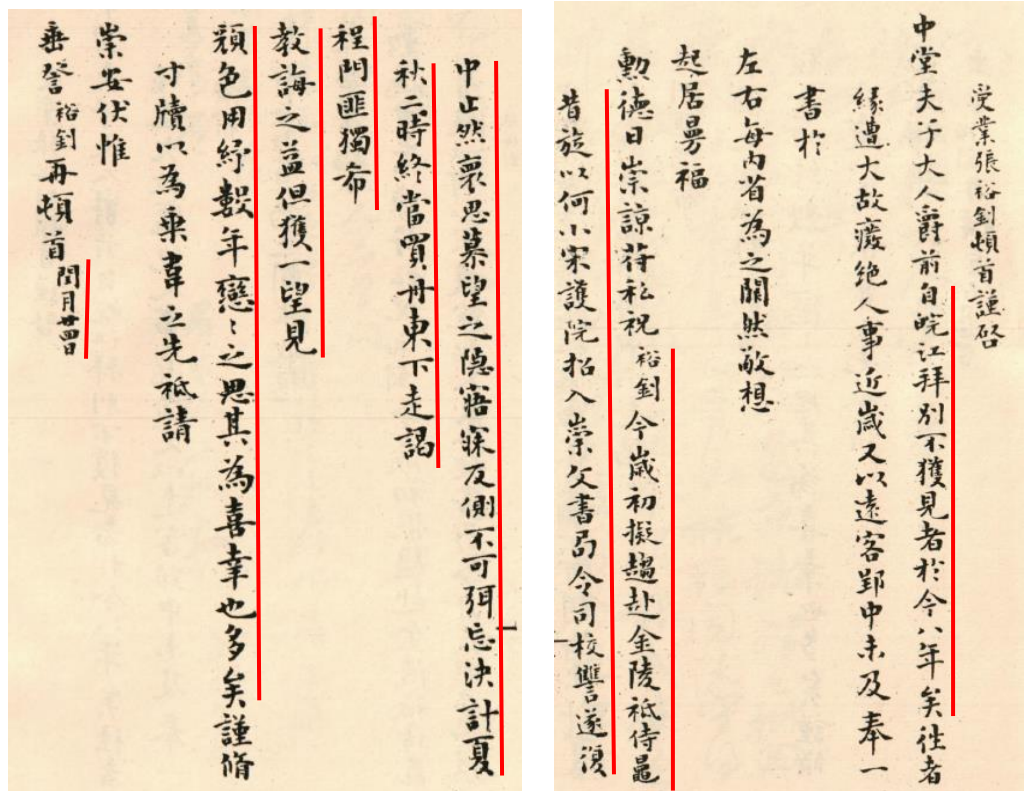 受業張裕釗頓首謹啓
中堂夫子大人爵前自皖江拜別不獲見者於今八年矣往者
緣遭大故癈绝人事近歲又以遠客鄞中未及奉一
書於
左右每內省為之闕然敬想
起居曼福
勳德日崇諒符私祝裕釗今歲初擬趨赴金陵祗侍
昔旋以何小宋護院招入崇文書局令司校讐遂復
中止然裹思慕望之隐寤寐反側不可弭忘決計夏
秋二時終當買舟東下走謁
程門匪獨希
教誨之益但獲一望見
顏色用紓數年戀〻之思其為喜幸也多矣謹脩
寸牘以為乗韋之先祗請
崇安伏惟
垂詧裕釗再頓首閏月廿四日